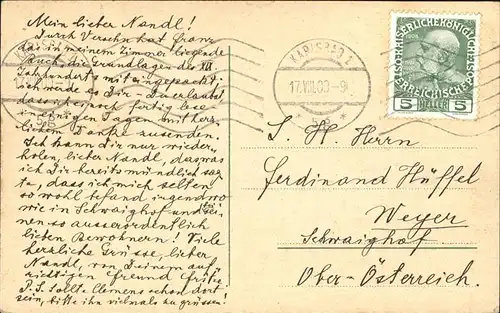 Mein lieber Nandl!
Durch Versehn hat Franz
das in meinem Zimmer liegende
Buch, die Grundlagen des XIX.
Jahrhunderts mit eingepackt;
ich werde es Dir – Du erlaubst
dass ich es noch fertig lese –
in einigen Tagen mit herz-
lichem Danke zusenden.
Ich kann Dir nur wieder-
holen, lieber Nandl, das was
ich Dir bereits mündlich sag-
te, dass ich mich selten
so wohl befand irgendwo
wie in Schwaighof und bei sei-
nen so ausserordentlich
lieben Bewohnern! Viele
herzliche Grüsse, lieber
Nandl, von Deinem auf-
richtigen Freund Fritz
P.S. sollte Clemens schon dort
sein, bitte ihn vielmals zu grüssen!
KARLSBAD 1
17.VIII.09-9
5 HELLER 5
S. H. Herrn
Ferdinand Hüffel
Weyer
Schwaighof
Ober-Österreich.